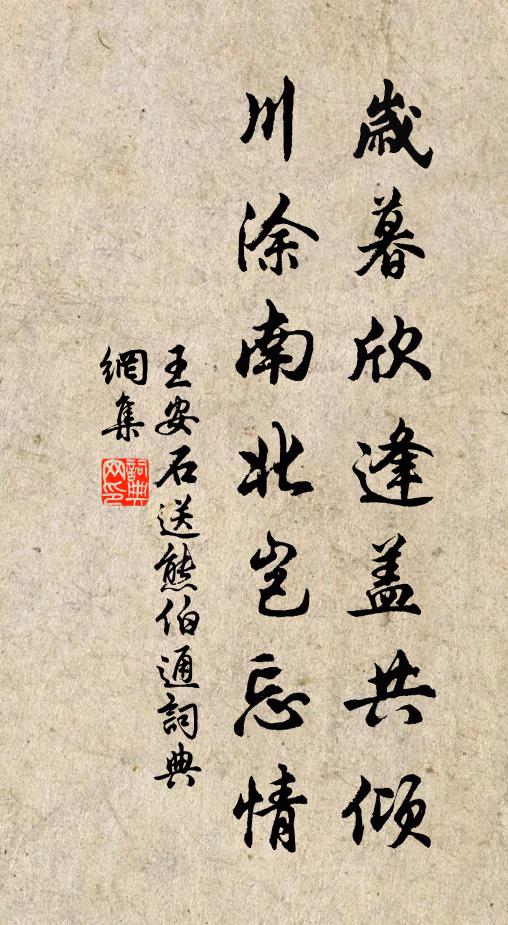 歲暮欣逢盖共傾
川涂南北豈忘情
王安石送熊伯通詞典
網集
詞典
网印